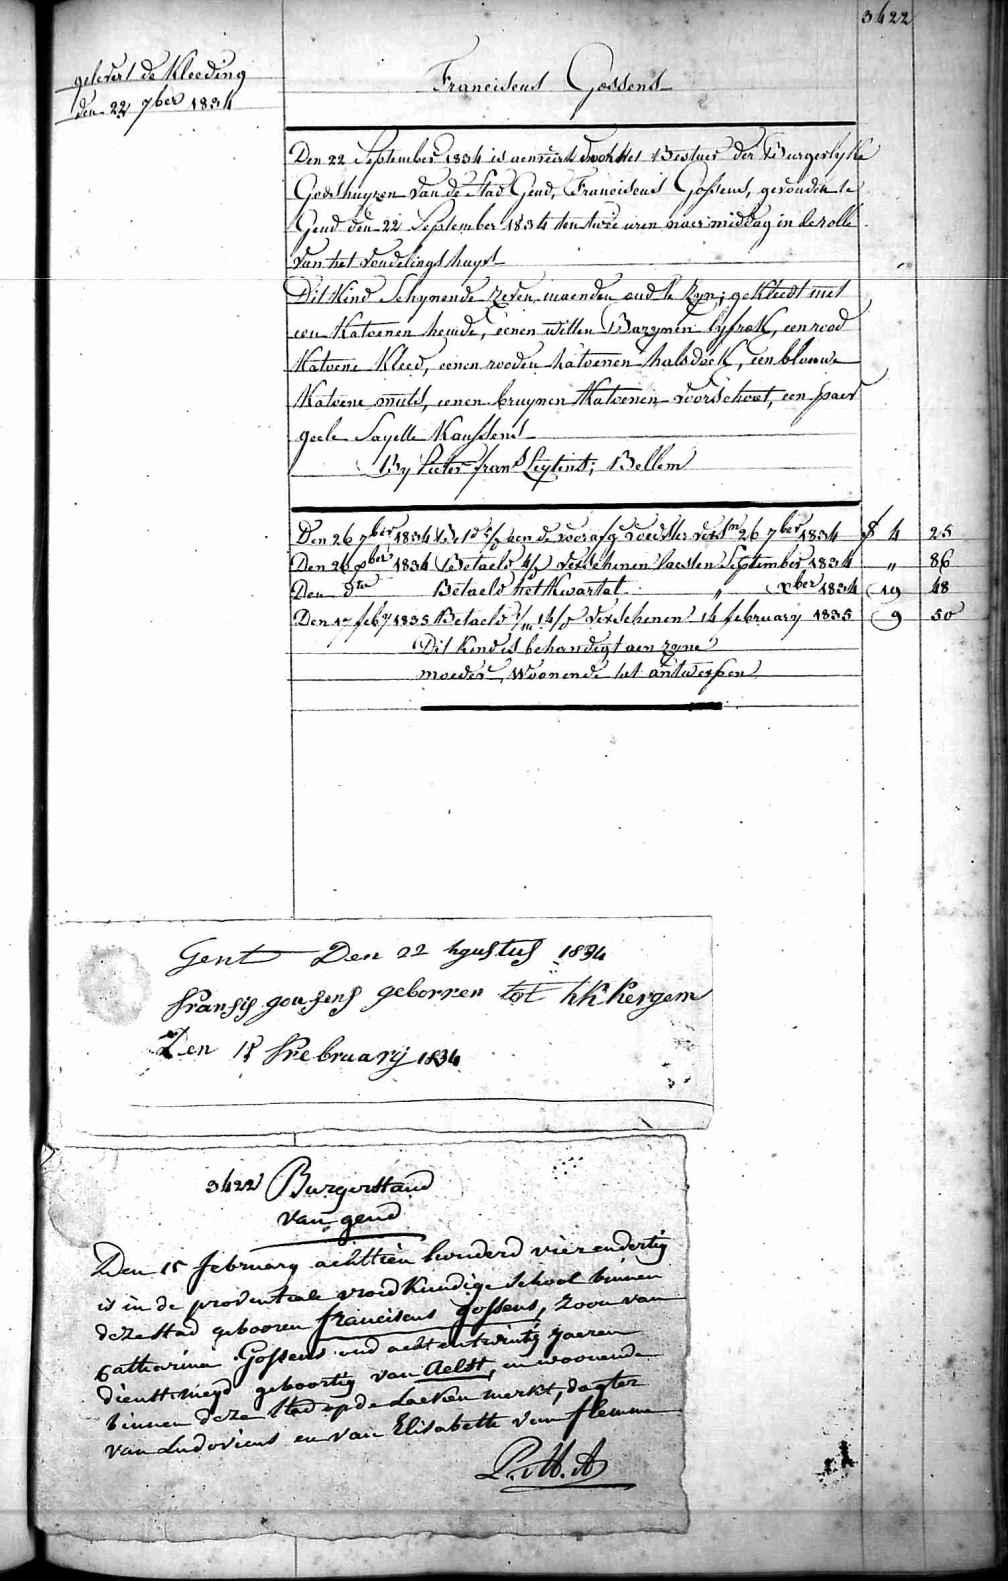 3422
gelevert de Kleeding
den 22 7ber 1834
Franciscus Gossens
Den 22 September 1834 is aenveird door het Bestuer der Burgerlyke
Godshuyzen van de Stad Gend, Franciscus Gossens, gevonden te
Gend den 22 September 1834 ten twee uren naer middag in de rolle
van het vondelings huys
Dit Kind Schynende zeven maenden oud te zyn; gekleedt met
een Katoenen hemde, eenen witten Bazynen lyfrok, een rood
Katoene Kleed, eenen rooden katoenen halsdoek, een blauwe
Katoene muts, eenen bruynen Katoenen voorschoot, een paer
geele Sayette Kaussens
By Pieter frans Leytens; Bellem
Den 26 7ber 1834 aen de voorafg voedster 26 7ber 1834 4 25
Den 26 xber 1834 Betaeld verschenen laesten September 1834 " 86
Den dto Betaeld het Kwartal " xber 1834 19 48
Den 14 feby 1835 Betaeld verschenen 14 february 1835 9 50
Dit Kind is behandigt aen zyne
moeder, woonende tot antwerpen
Gent Den 22 hgustus 1834
fransis gousens geborren tot kergem
Den 15 frebruarij 1834
3422 Burgerstand
van gend
Den 15 february achttien hunderd vierendertig
is in de provintiale vroedkundige school binnen
deze stad gebooren franciscus gossens, zoon van
Catharina Gossens oud achtentwintig jaeren
dienstmeyd geboortig van Aelst, en woonende
binnen deze stad op de Laeken merkt, dogter
van Ludovicus en van Elisabette van flemme